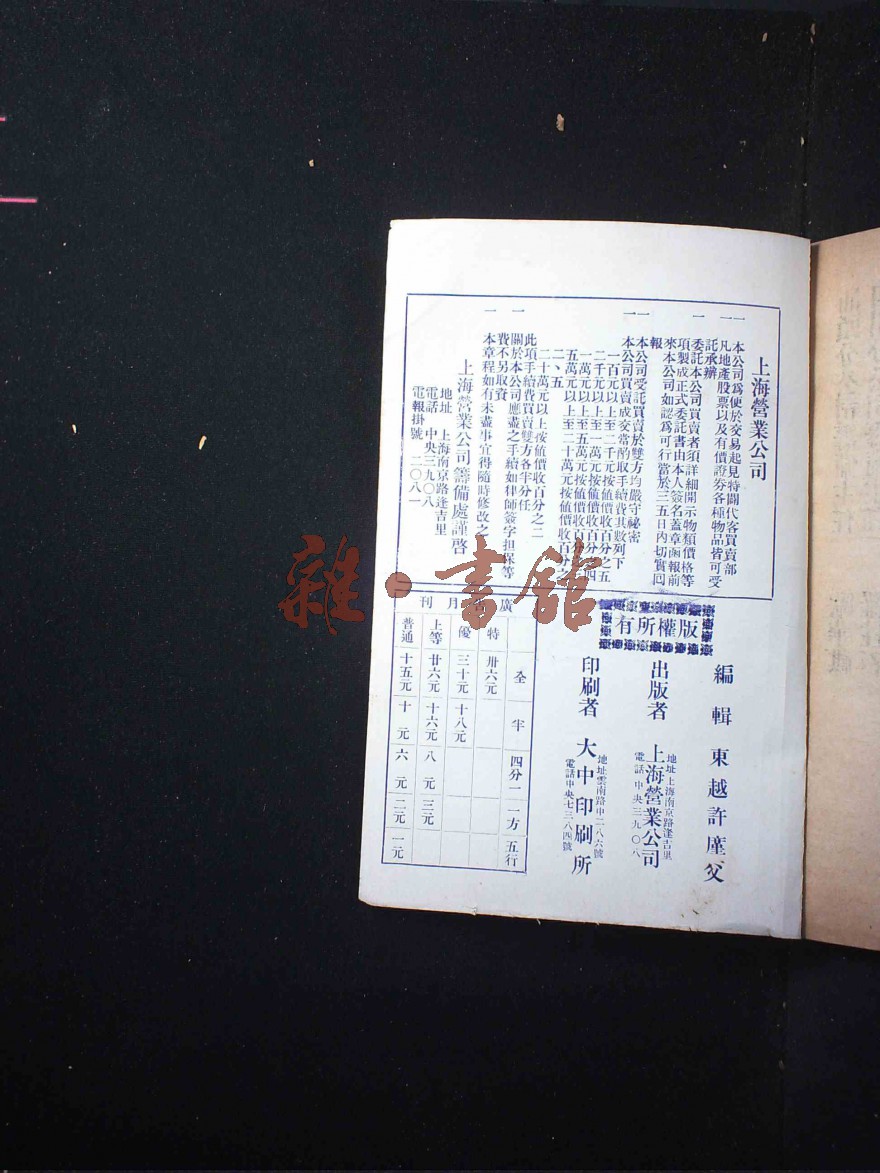 上海營業公司
一 本公司爲便於交易起見特闢代客買賣部
一 凡地產股票以及有價證券各種物品皆可受
託承辦
一 委託本公司買賣者須詳細開示物類價格等
項製成正式委託書由本人簽名蓋章函報前
來本公司如認爲可行當於三五日內切實囘
報
一 本公司受託買賣於雙方均嚴守祕密
一 本公司買賣成交常酌取手續費其數列下
一百元以上至二千元按値價收百分之五
二千元以上至一萬元按値價收百分之四
一萬元以上至五萬元按値價收百分
五萬元以上至二十萬元按値價收百分
二、五
二十萬元以上按値價收百分之二
此項手續費買賣雙方各半分任
一 關於本公司應盡之手續如律師簽字担保等
費不另取資
一 本章程如有未盡事宜得隨時修改之
上海營業公司籌備處謹啓
地址 上海南京路逢吉里
電話 中央三九〇八
電報掛號 二〇八一
版權所有
編輯 東越許廑父
出版者 上海營業公司
地址上海南京路逢吉里
電話中央三九〇八
印刷者 大中印刷所
地址雲南路申二八六號
電話中央七三八四號
廣 月刊
全 半 四分一 一方 五行
特 卅六元
優 三十元 十八元
上等 廿六元 十六元 八元 三元
普通 十五元 十元 六元 二元 一元
雜·書館